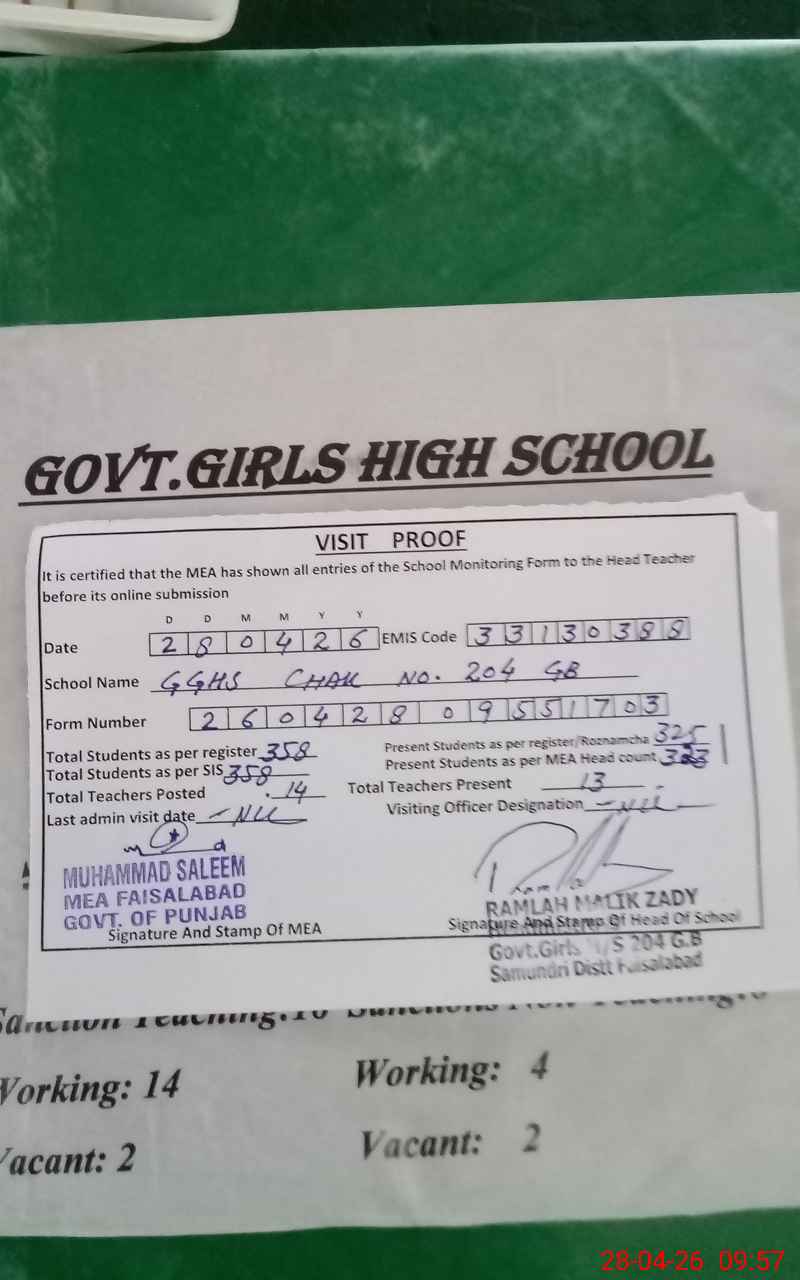 GOVT.GIRLS HIGH SCHOOL
VISIT PROOF
It is certified that the MEA has shown all entries of the School Monitoring Form to the Head Teacher
before its online submission
D D M M Y Y
Date 2 8 0 4 2 6 EMIS Code 3 3 1 3 0 3 8 8
School Name GGHS CHAK NO. 204 GB
Form Number 2 6 0 4 2 8 0 9 5 5 1 7 0 3
Total Students as per register 358 Present Students as per register/Roznamcha 325
Total Students as per SIS 358 Present Students as per MEA Head count 323
Total Teachers Posted 14 Total Teachers Present 13
Last admin visit date - Nil Visiting Officer Designation - Nil -
MUHAMMAD SALEEM
MEA FAISALABAD
GOVT. OF PUNJAB
Signature And Stamp Of MEA
RAMLAH MALIK ZADY
Signature And Stamp Of Head Of School
Govt.Girls H/S 204 G.B
Samundri Distt Faisalabad
Sanction Teaching:16 Sanctions Non Teaching:6
Working: 14 Working: 4
Vacant: 2 Vacant: 2
28-04-26 09:57